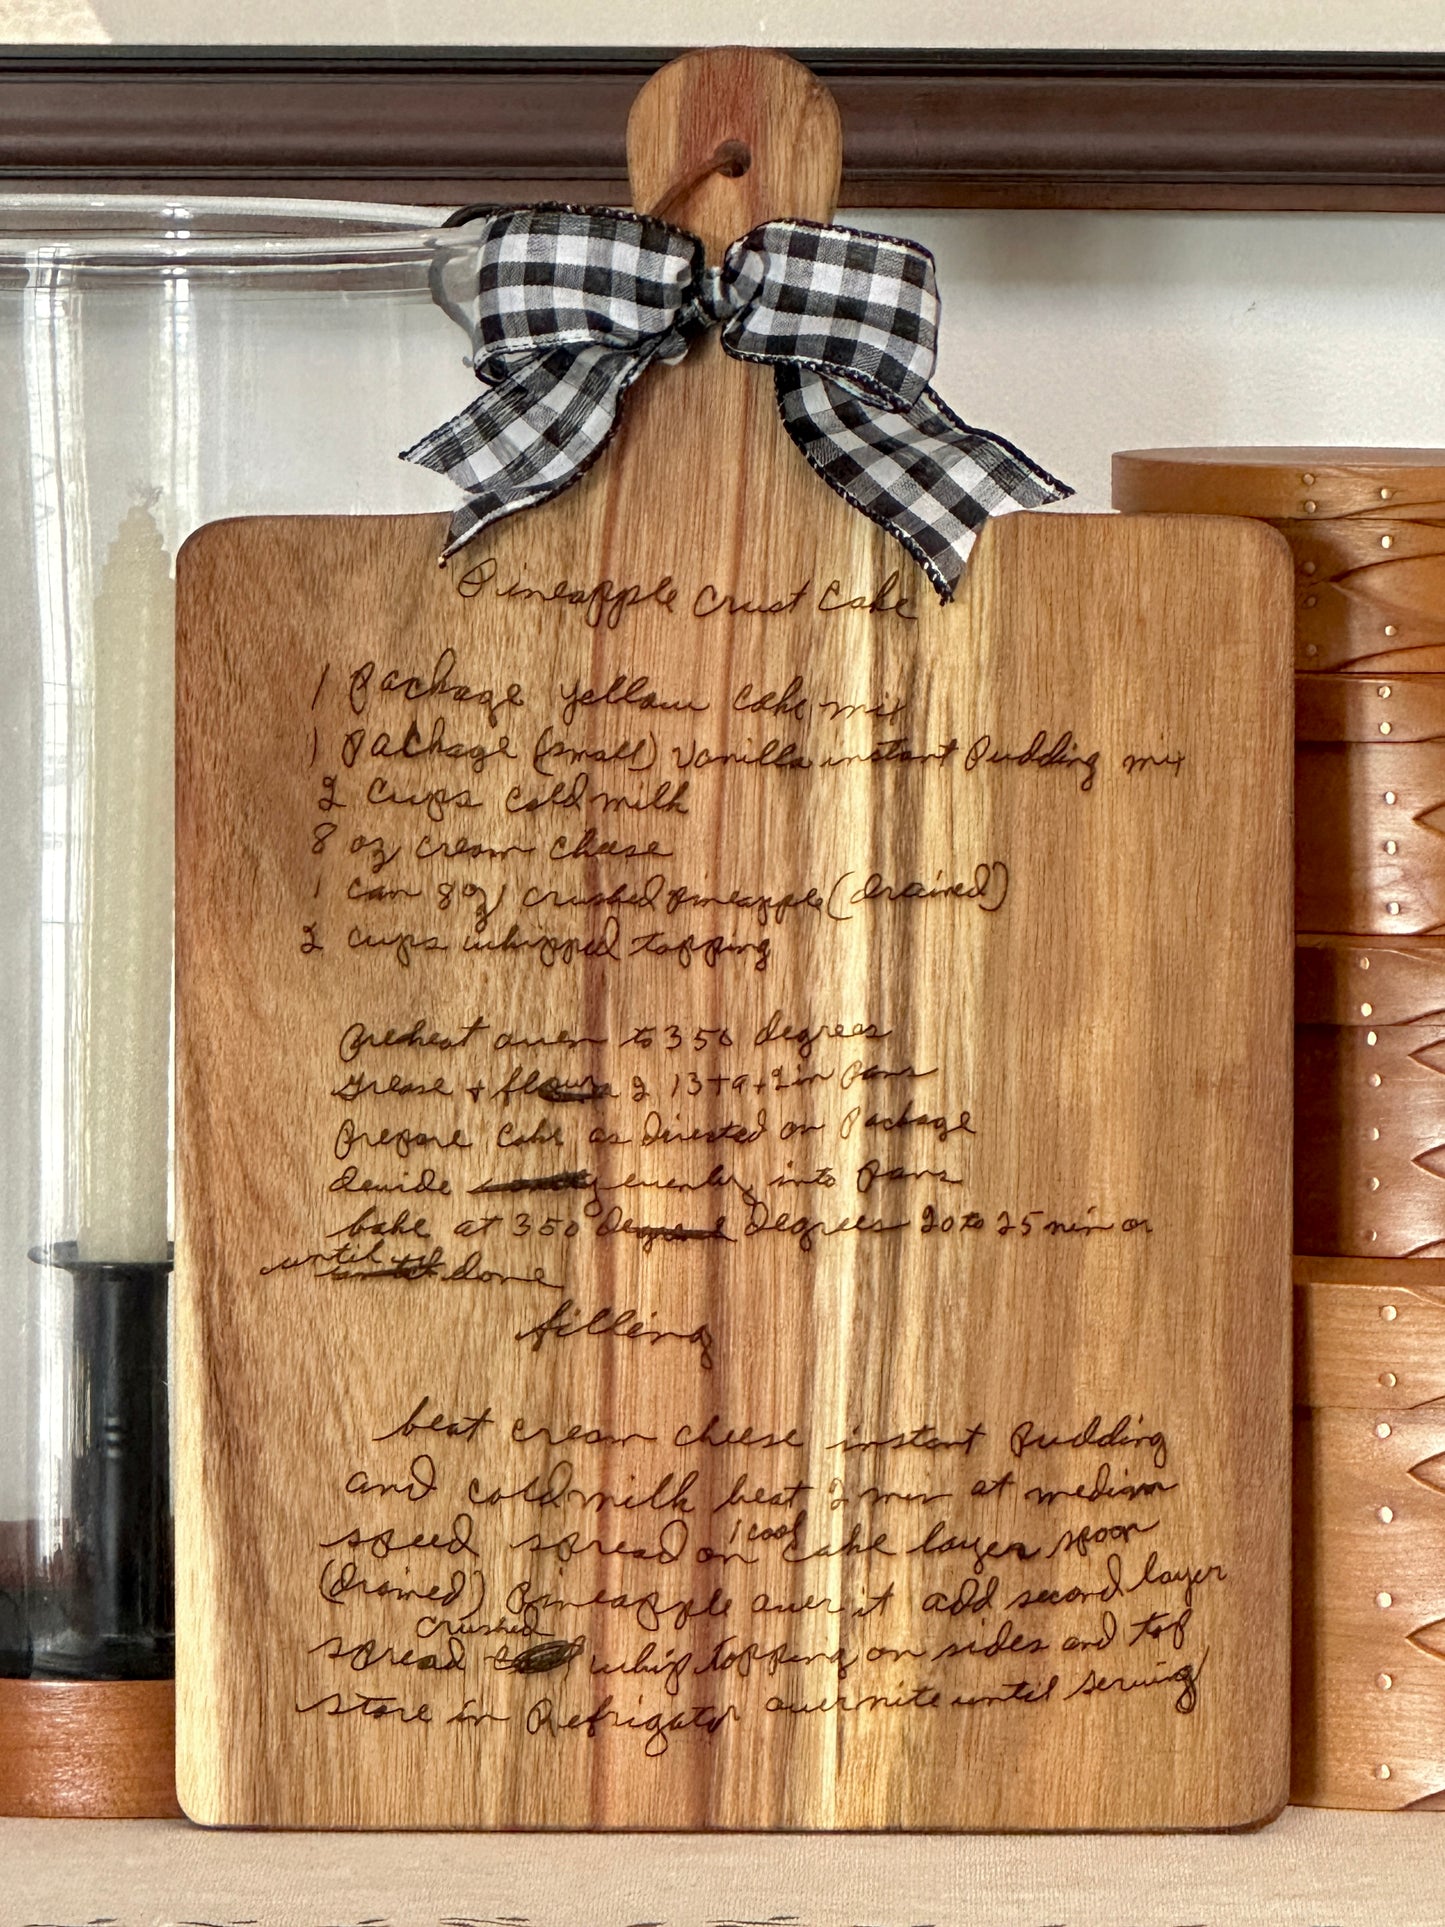 Pineapple Crust Cake
1 Package yellow cake mix
1 Package (small) Vanilla instant Pudding mix
2 cups cold milk
8 oz cream cheese
1 can 8 oz crushed pineapple (drained)
2 cups whipped topping
Preheat oven to 350 degrees
Grease + flour 2 13+9+2 in Pans
Prepare cake as directed on Package
devide evenly into Pans
bake at 350 degrees 20 to 25 min or
until done
filling
beat cream cheese instant Pudding
and cold milk beat 2 min at medium
speed spread on 1 cool cake layer spoon
(drained) Pineapple over it add second layer
crushed
spread whip topping on sides and top
store in Refrigator overnite until serving